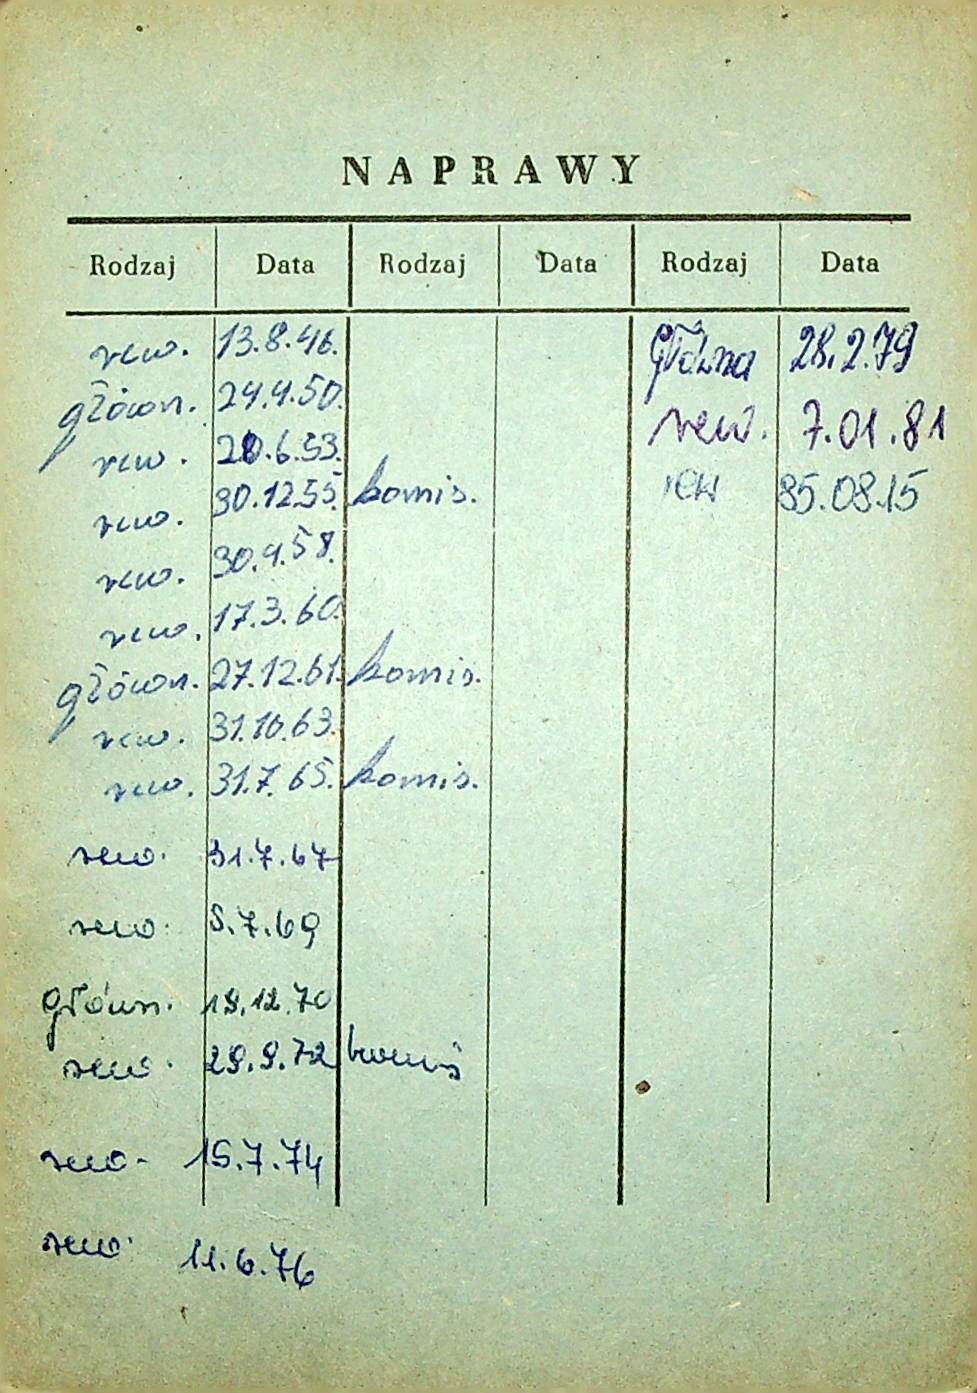 NAPRAWY
Rodzaj Data Rodzaj Data Rodzaj Data
rew. 13.8.46. Główna 28.2.79
główn. 24.4.50. rew. 7.01.81
rew. 20.6.53. rew 85.08.15
rew. 30.12.55. komis.
rew. 30.4.58.
rew. 17.3.60.
główn. 27.12.61. komis.
rew. 31.10.63.
rew. 31.7.65. komis.
rew. 31.7.67
rew. 5.7.69
główn. 19.12.70
rew. 29.9.72 komis
rew- 15.7.74
rew. 11.6.76